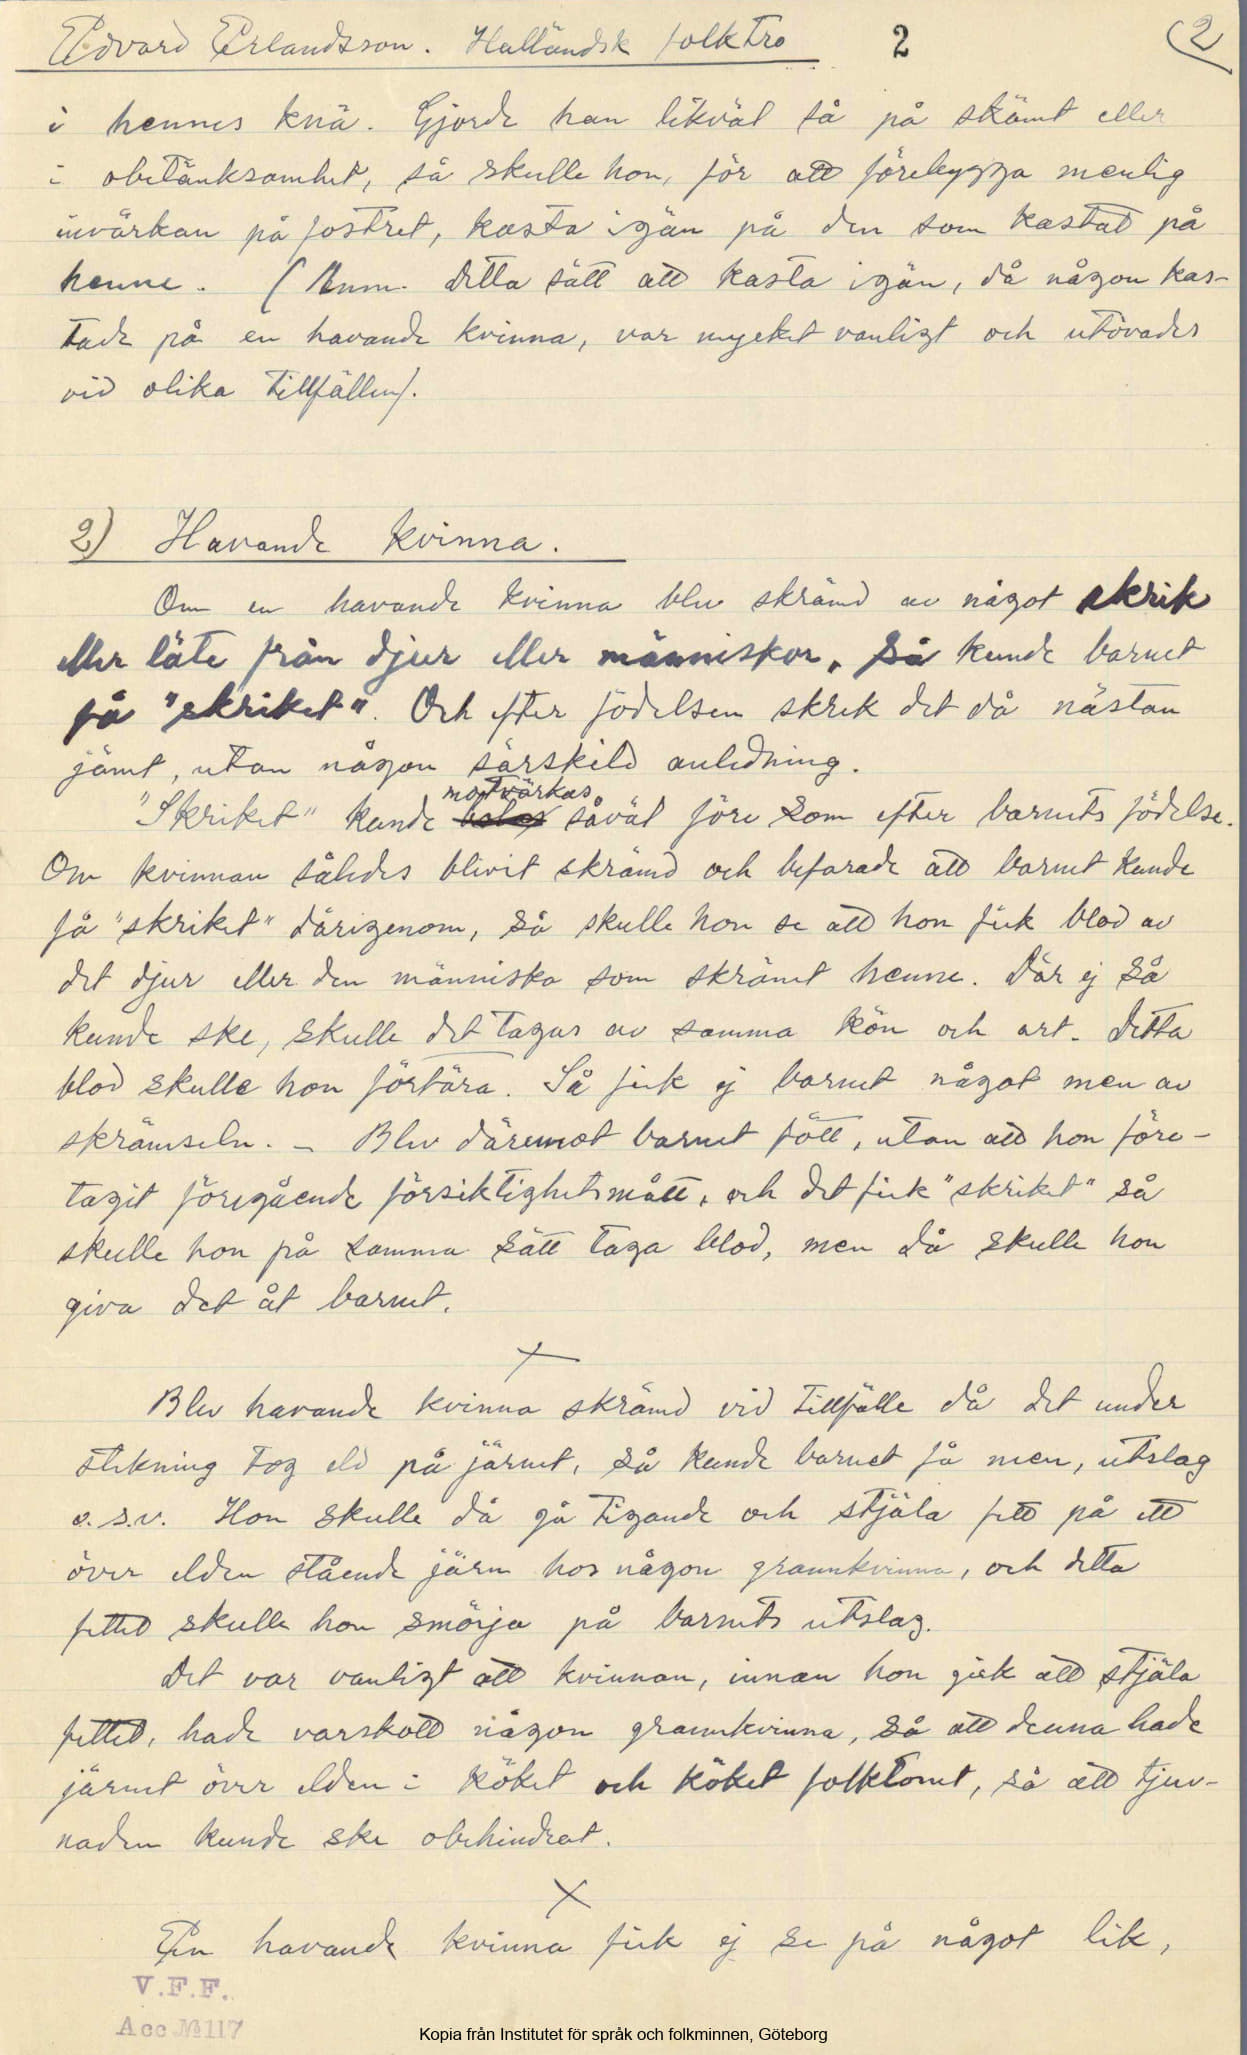 Edvard Erlandsson. Halländsk folktro 2 (2
i hennes knä. Gjorde han likväl så på skämt eller
i obetänksamhet, så skulle hon, för att förebygga menlig
invärkan på fostret, kasta igän på den som kastat på
henne. (Anm. Detta sätt att kasta igän, då någon kas-
tade på en havande kvinna, var mycket vanligt och utövades
vid olika tillfällen).
2) Havande kvinna.
Om en havande kvinna blev skrämd av något skrik
eller läte från djur eller människor, så kunde barnet
få "skriket". Och efter födelsen skrek det då nästan
jämt, utan någon särskild anledning.
motvärkas
"Skriket" kunde såväl före som efter barnets födelse.
Om kvinnan således blivit skrämd och befarade att barnet kunde
få "skriket" därigenom, så skulle hon se att hon fick blod av
det djur eller den människa som skrämt henne. Där ej så
kunde ske, skulle det tagas av samma kön och art. Detta
blod skulle hon förtära. Så fick ej barnet något men av
skrämseln. – Blev däremot barnet fött, utan att hon före-
tagit föregående försiktighetsmått, och det fick "skriket" så
skulle hon på samma sätt taga blod, men då skulle hon
giva det åt barnet.
×
Blev havande kvinna skrämd vid tillfälle då det under
stekning tog eld på järnet, så kunde barnet få men, utslag
o.s.v. Hon skulle då gå tigande och stjäla fett på ett
över elden stående järn hos någon grannkvinna, och detta
fettet skulle hon smörja på barnets utslag.
Det var vanligt att kvinnan, innan hon gick att stjäla
fettet, hade varskott någon grannkvinna, så att denna hade
järnet över elden i köket och köket folktomt, så att tjuv-
naden kunde ske obehindrat.
×
En havande kvinna fick ej se på något lik,
V.F.F.
Acc №117
Kopia från Institutet för språk och folkminnen, Göteborg